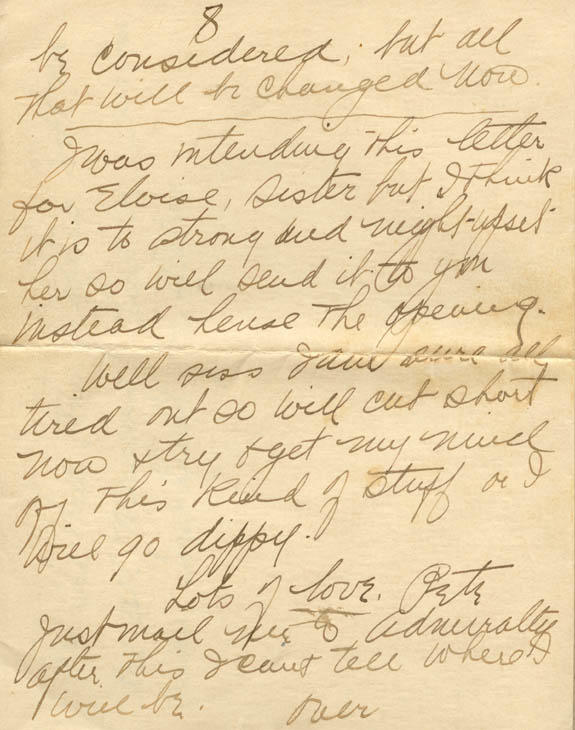 8
be considered, but all
that will be changed now.
I was intending this letter
for Eloise, sister but I think
it is to strong and might upset
her so will send it to you
instead hense the opening.
Well siss I am sure all
tired out so will cut short
now & try & get my mind
off this kind of stuff or I
will go dippy.
Lots of love. Pete
Just mail me to admiralty
after this I cant tell where I
will be. over